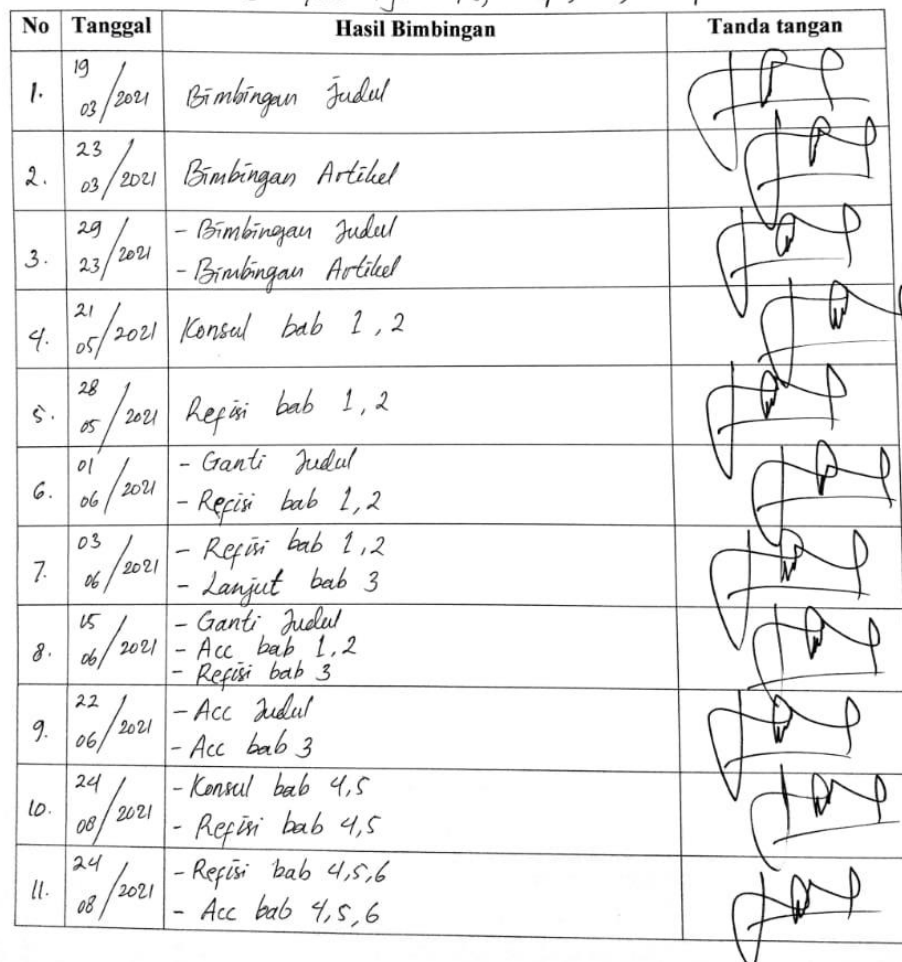 No Tanggal Hasil Bimbingan Tanda tangan
1. 19/03/2021 Bimbingan Judul
2. 23/03/2021 Bimbingan Artikel
3. 29/23/2021 - Bimbingan Judul
- Bimbingan Artikel
4. 21/05/2021 Konsul bab 1, 2
5. 28/05/2021 Refisi bab 1, 2
6. 01/06/2021 - Ganti Judul
- Refisi bab 1, 2
7. 03/06/2021 - Refisi bab 1, 2
- Lanjut bab 3
8. 15/06/2021 - Ganti Judul
- Acc bab 1, 2
- Refisi bab 3
9. 22/06/2021 - Acc Judul
- Acc bab 3
10. 24/08/2021 - Konsul bab 4,5
- Refisi bab 4,5
11. 24/08/2021 - Refisi bab 4,5,6
- Acc bab 4,5,6